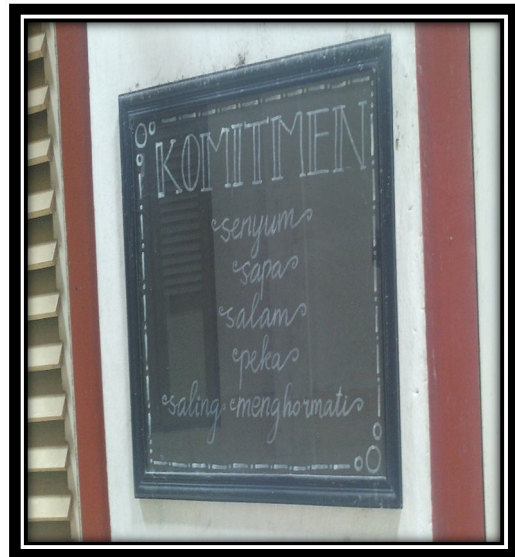 KOMITMEN
senyum
sapa
salam
peka
saling menghormati